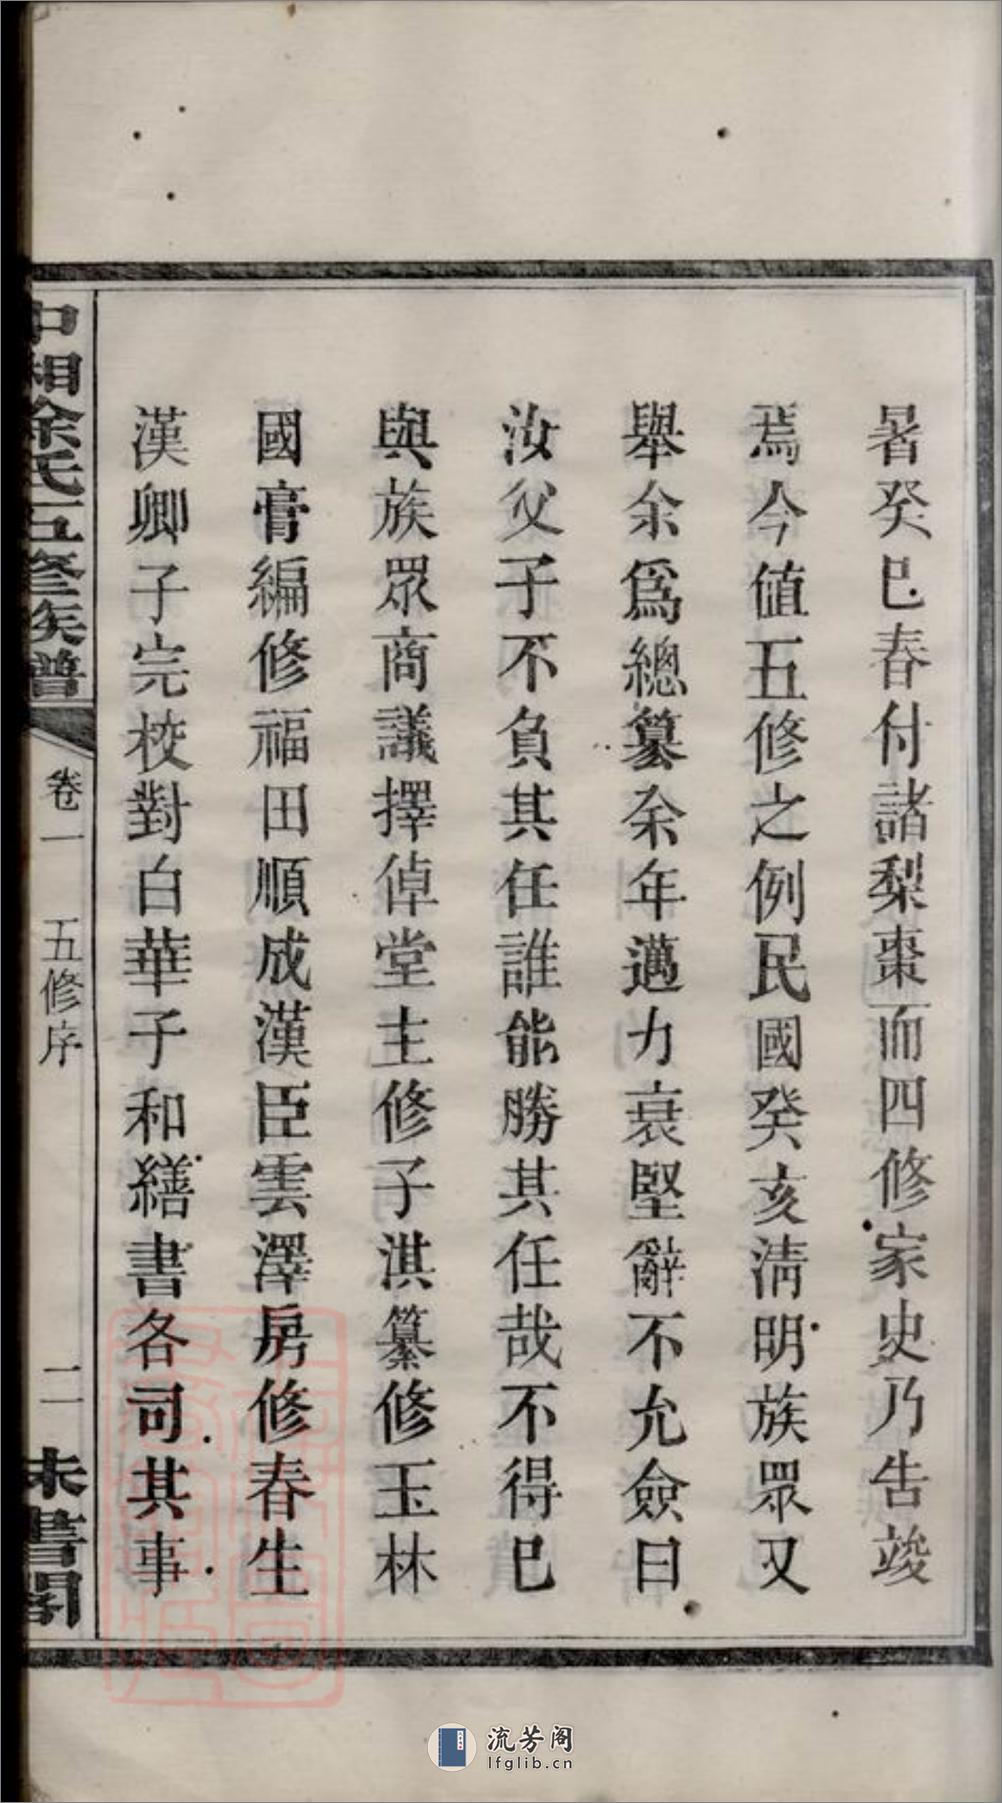 暑癸巳春付諸梨棗而四修家史乃告竣
焉今値五修之例民國癸亥淸明族眾又
舉余爲總纂余年邁力衰堅辭不允僉曰
汝父子不負其任誰能勝其任哉不得已
與族眾商議擇倬堂主修子淇纂修玉林
國膏編修福田順成漢臣雲澤房修春生
漢卿子完校對白華子和繕書各司其事
中湘余氏五修族譜
卷一 五修序 二
末書閣
流芳阁
lfglib.cn